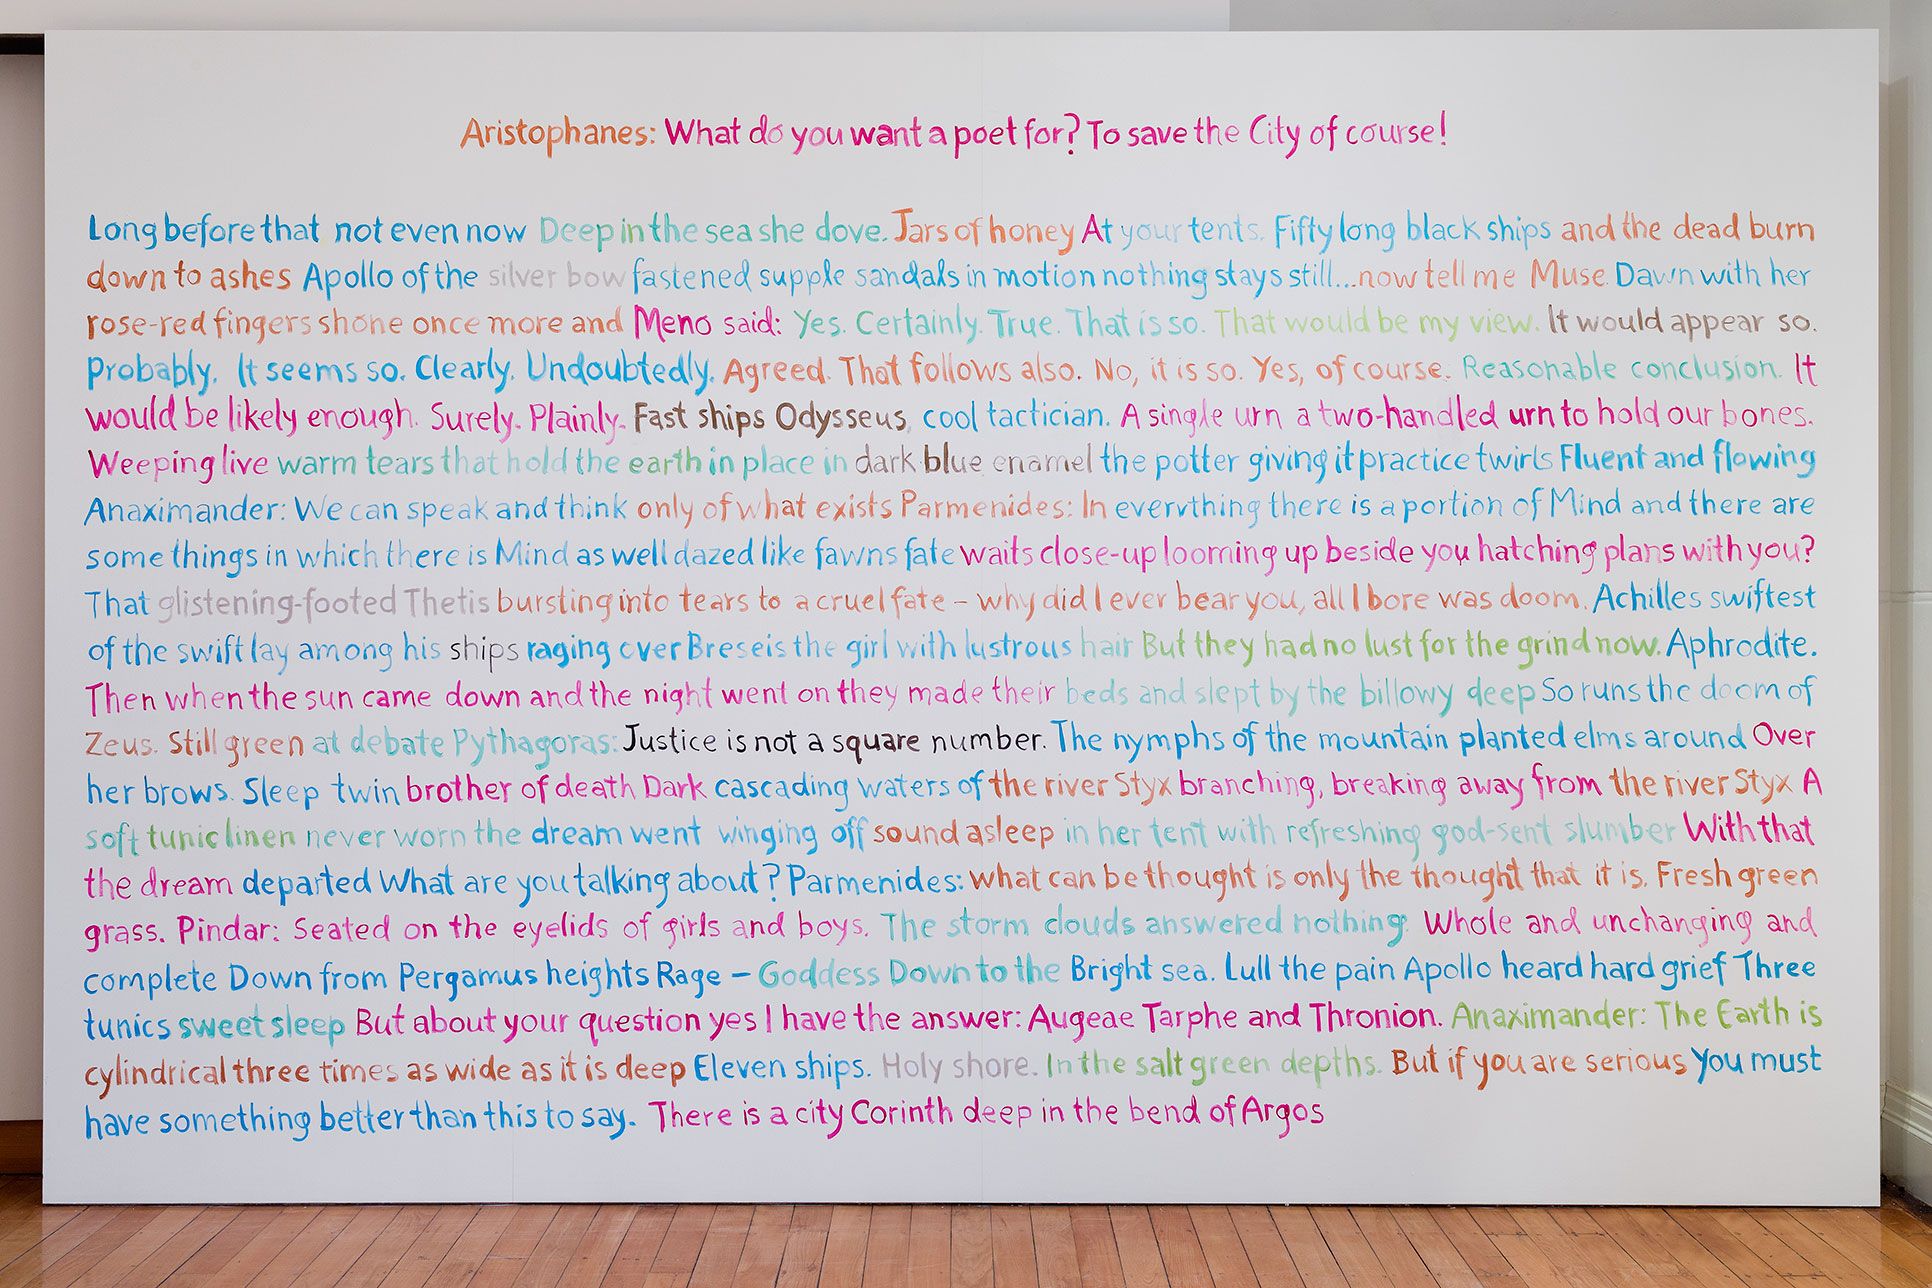 Aristophanes: What do you want a poet for? To save the City of course!
Long before that not even now Deep in the sea she dove. Jars of honey At your tents. Fifty long black ships and the dead burn
down to ashes Apollo of the silver bow fastened supple sandals in motion nothing stays still...now tell me Muse. Dawn with her
rose-red fingers shone once more and Meno said: Yes. Certainly. True. That is so. That would be my view. It would appear so.
Probably. It seems so. Clearly. Undoubtedly. Agreed. That follows also. No, it is so. Yes, of course. Reasonable conclusion. It
would be likely enough. Surely. Plainly. Fast ships Odysseus, cool tactician. A single urn a two-handled urn to hold our bones.
Weeping live warm tears that hold the earth in place in dark blue enamel the potter giving it practice twirls Fluent and flowing
Anaximander: We can speak and think only of what exists Parmenides: In everything there is a portion of Mind and there are
some things in which there is Mind as well dazed like fawns fate waits close-up looming up beside you hatching plans with you?
That glistening-footed Thetis bursting into tears to a cruel fate – why did I ever bear you, all I bore was doom. Achilles swiftest
of the swift lay among his ships raging over Breseis the girl with lustrous hair But they had no lust for the grind now. Aphrodite.
Then when the sun came down and the night went on they made their beds and slept by the billowy deep So runs the doom of
Zeus. Still green at debate Pythagoras: Justice is not a square number. The nymphs of the mountain planted elms around Over
her brows. Sleep twin brother of death Dark cascading waters of the river Styx branching, breaking away from the river Styx A
soft tunic linen never worn the dream went winging off sound asleep in her tent with refreshing god-sent slumber With that
the dream departed What are you talking about? Parmenides: what can be thought is only the thought that it is. Fresh green
grass. Pindar: Seated on the eyelids of girls and boys. The storm clouds answered nothing. Whole and unchanging and
complete Down from Pergamus heights Rage – Goddess Down to the Bright sea. Lull the pain Apollo heard hard grief Three
tunics sweet sleep But about your question yes I have the answer: Augeae Tarphe and Thronion. Anaximander: The Earth is
cylindrical three times as wide as it is deep Eleven ships. Holy shore. In the salt green depths. But if you are serious You must
have something better than this to say. There is a city Corinth deep in the bend of Argos